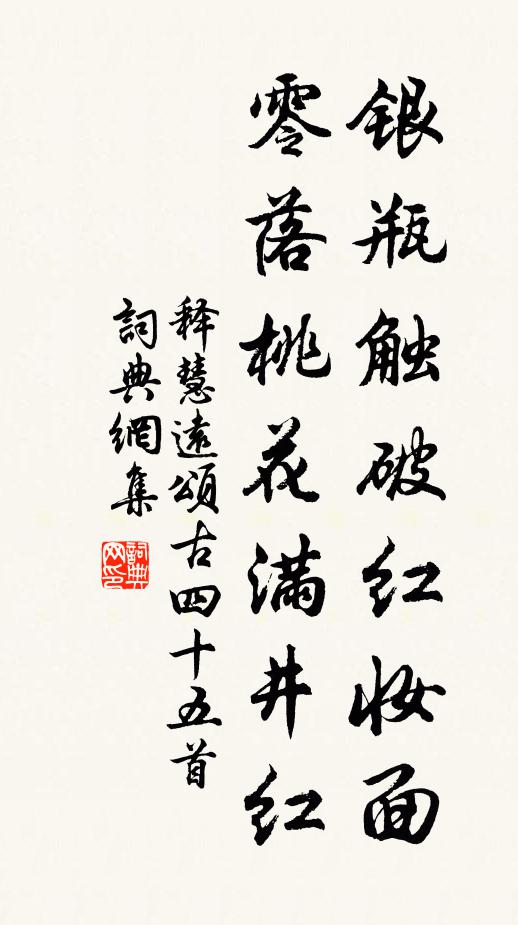 银瓶触破红妆面
零落桃花满井红
释慧遠頌古四十五首
詞典網集
詞典
网印